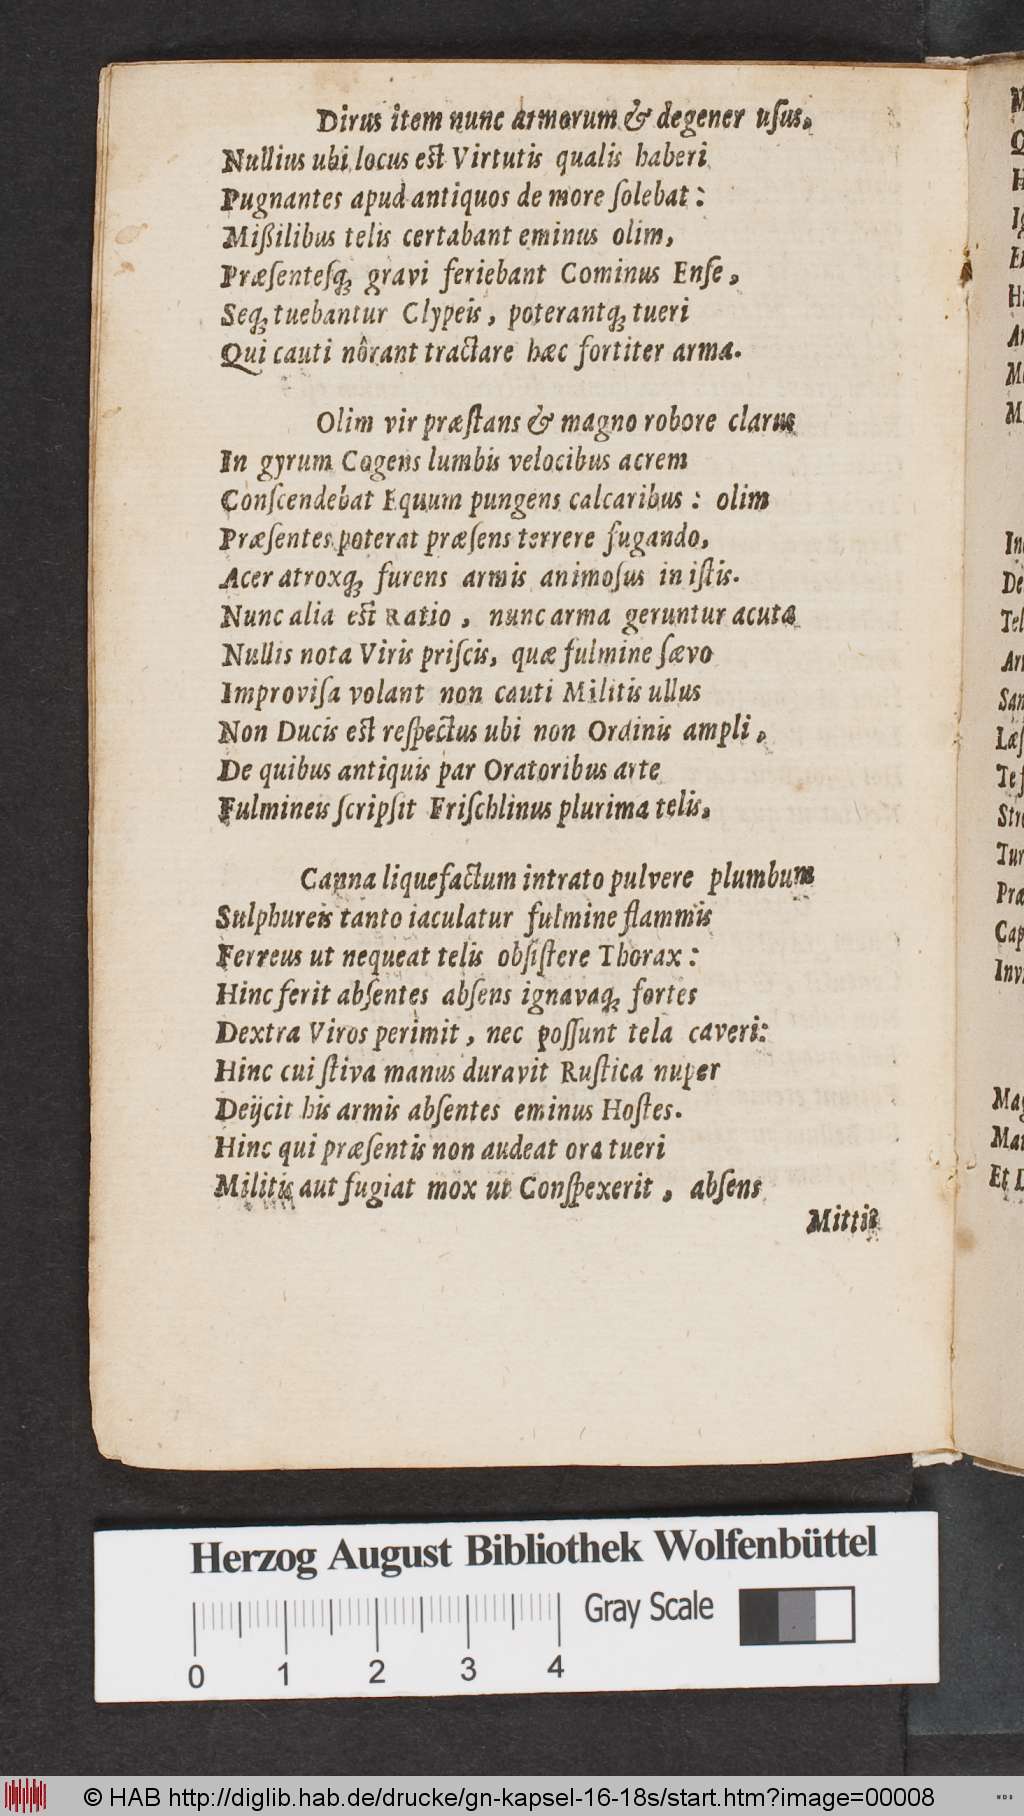 Dirus item nunc armorum & degener uſus.
Nullius ubi locus est Virtutis qualis haberi
Pugnantes apud antiquos de more ſolebat:
Mißilibus telis certabant eminus olim,
Præſenteſq́ʒ gravi feriebant Cominus Enſe,
Seqʒ tuebantur Clypeis, poterantqʒ tueri
Qui cauti nôrant tractare hæc fortiter arma.
Olim vir præstans & magno robore clarus
In gyrum Cogens lumbis velocibus acrem
Conſcendebat Equum pungens calcaribus: olim
Præſentes poterat præſens terrere fugando,
Acer atroxqʒ furens armis animoſus in iſtis.
Nunc alia est Ratio, nunc arma geruntur acuta
Nullis nota Viris priſcis, quæ fulmine ſævo
Improviſa volant non cauti Militis ullus
Non Ducis est reſpectus ubi non Ordinis ampli,
De quibus antiquis par Oratoribus arte
Fulmineis ſcripſit Friſchlinus plurima telis.
Canna liquefactum intrato pulvere plumbum
Sulphureis tanto iaculatur fulmine flammis
Ferreus ut nequeat telis obſiſtere Thorax:
Hinc ferit abſentes abſens ignavaqʒ fortes
Dextra Viros perimit, nec poſſunt tela caveri:
Hinc cui ſtiva manus duravit Ruſtica nuper
Deijcit his armis abſentes eminus Hoſtes.
Hinc qui præſentis non audeat ora tueri
Militis aut fugiat mox ut Conſpexerit, abſens
Mittit
Herzog August Bibliothek Wolfenbüttel
Gray Scale
0 1 2 3 4
© HAB http://diglib.hab.de/drucke/gn-kapsel-16-18s/start.htm?image=00008